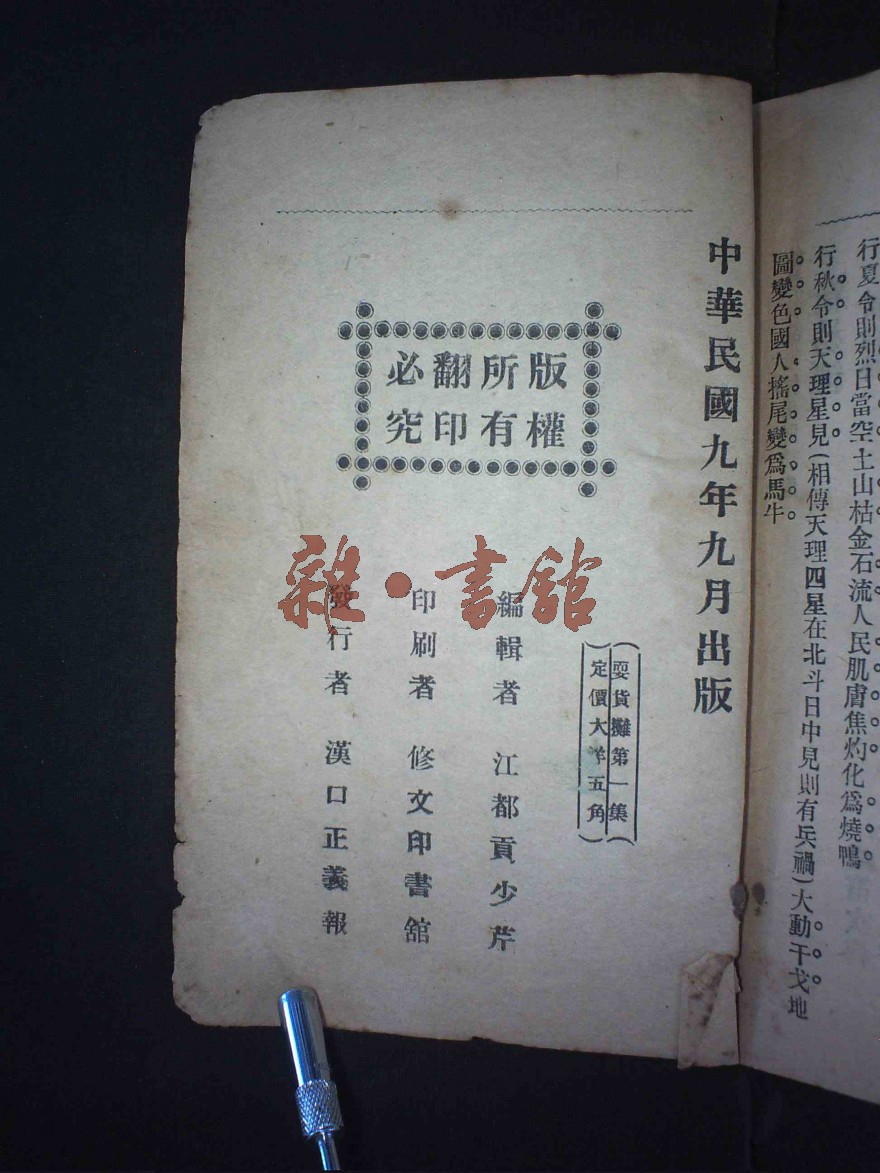 行夏令則烈日當空土山枯金石流人民肌膚焦灼化爲燒鴨
行秋令則天理星見(相傳天理四星在北斗日中見則有兵禍)大動干戈地
圖變色國人搖尾變爲馬牛
中華民國九年九月出版
版權所有
翻印必究
(耍貨攤第一集)
(定價大洋五角)
編輯者 江都貢少芹
印刷者 修文印書館
發行者 漢口正義報
雜·書館